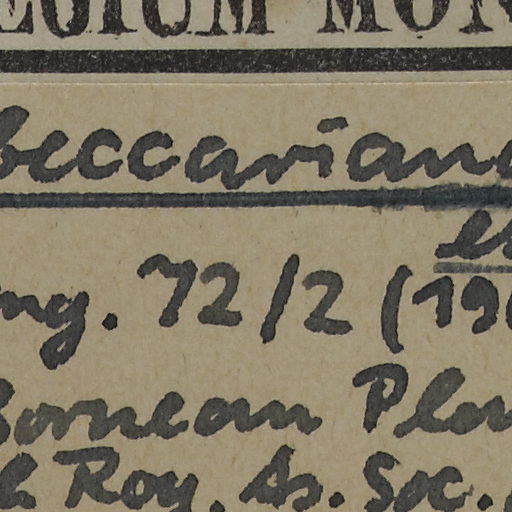 EGIUM MON
beccariana
es
ng. 72/2 (19
Bornean Plan
Roy. As. Soc.